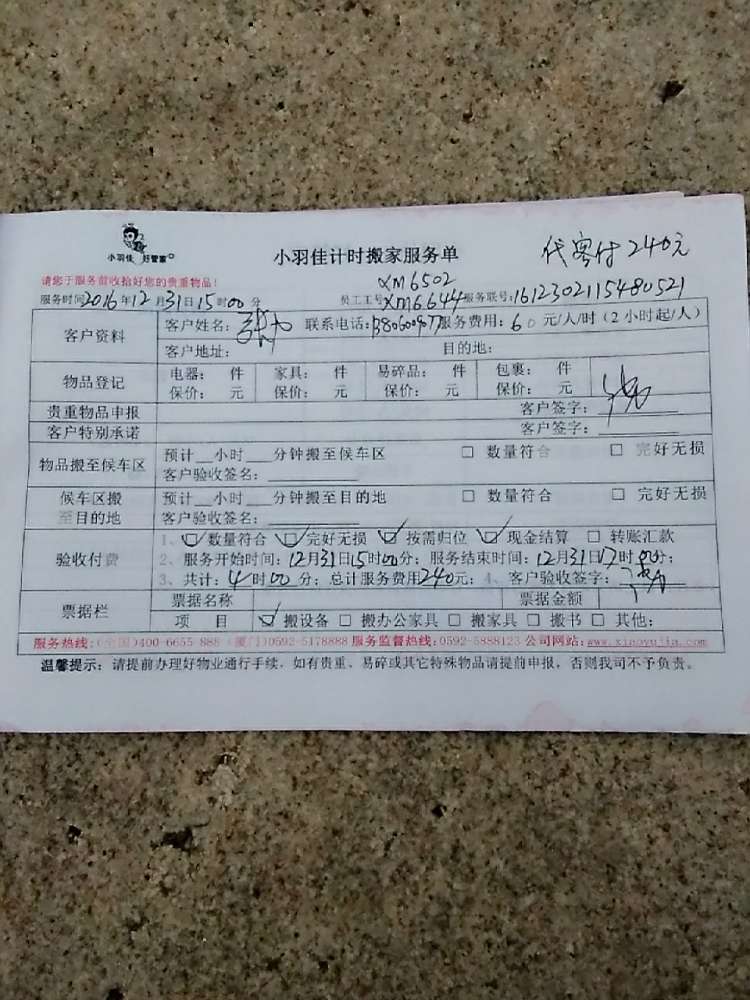 小羽佳 好管家
小羽佳计时搬家服务单
代客付240元
请您于服务前收拾好您的贵重物品!
XM6502
服务时间2016年12月31日15时00分 员工工号XM6644服务联号:1612302115480521
客户资料 客户姓名: 联系电话: 服务费用:60元/人/时(2小时起/人)
客户地址: 目的地:
物品登记 电器: 件 家具: 件 易碎品: 件 包裹: 件
保价: 元 保价: 元 保价: 元 保价: 元
贵重物品申报 客户签字:
客户特别承诺 客户签字:
物品搬至候车区 预计__小时__分钟搬至候车区 □ 数量符合 □ 完好无损
客户验收签名:
候车区搬至目的地 预计__小时__分钟搬至目的地 □ 数量符合 □ 完好无损
客户验收签名:
验收付费 1、☑数量符合 ☑完好无损 ☑按需归位 ☑现金结算 □ 转账汇款
2、服务开始时间:12月31日15时00分; 服务结束时间:12月31日17时00分;
3、共计:4时00分; 总计服务费用240元; 4、客户验收签字:
票据栏 票据名称 票据金额
项 目 ☑搬设备 □ 搬办公家具 □ 搬家具 □ 搬书 □ 其他:
服务热线:(全国)400-6655-888 (厦门)0592-5178888 服务监督热线:0592-5888123 公司网站:www.xiaoyujia.com
温馨提示: 请提前办理好物业通行手续,如有贵重、易碎或其它特殊物品请提前申报,否则我司不予负责。